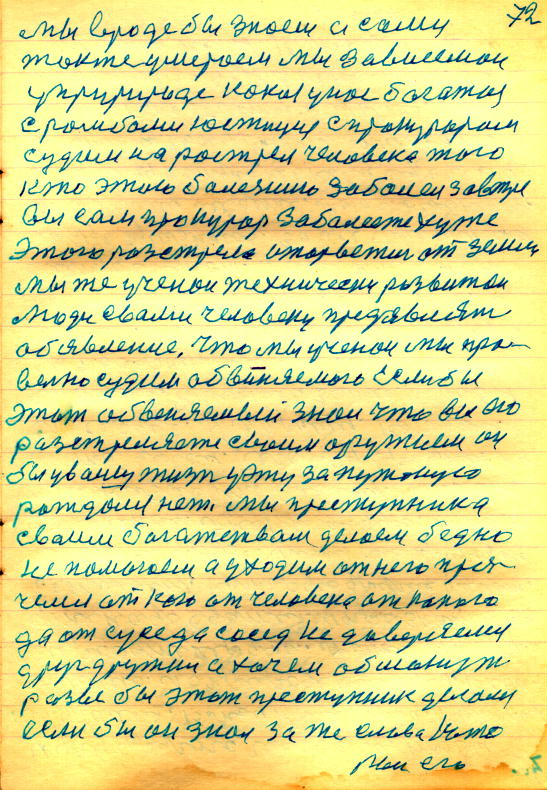 72
мы вроде бы знаем а сами
тоже умераем мы зависемои
у пририроде кокая у нас богатая
с рогибоми юстиция с прокурором
судим на рострел человека того
кто этою балезнию заболел завтре
вы сам прокурор забалеете хуже
этого разстрела оторветил от земли
мы же ученои технически развитои
люди свами человеку предявляят
обявление, что мы ученои мы пра-
вельно судим обвиняемого Если бы
этот обвеняемый знал что вы его
разстреляете своим оружием он
бы у вашу жизн у эту запутоную
рождали нет. мы преступника
сваим богатетвам делаем бедно
не помогаем а уходим от него пря-
чемся от кого от человека от какого
да от суседа сосед не даверяемы
друг дружки а хочем обмонут
разве бы этот преступник делоли
если бы он знал за же слова что
мы его